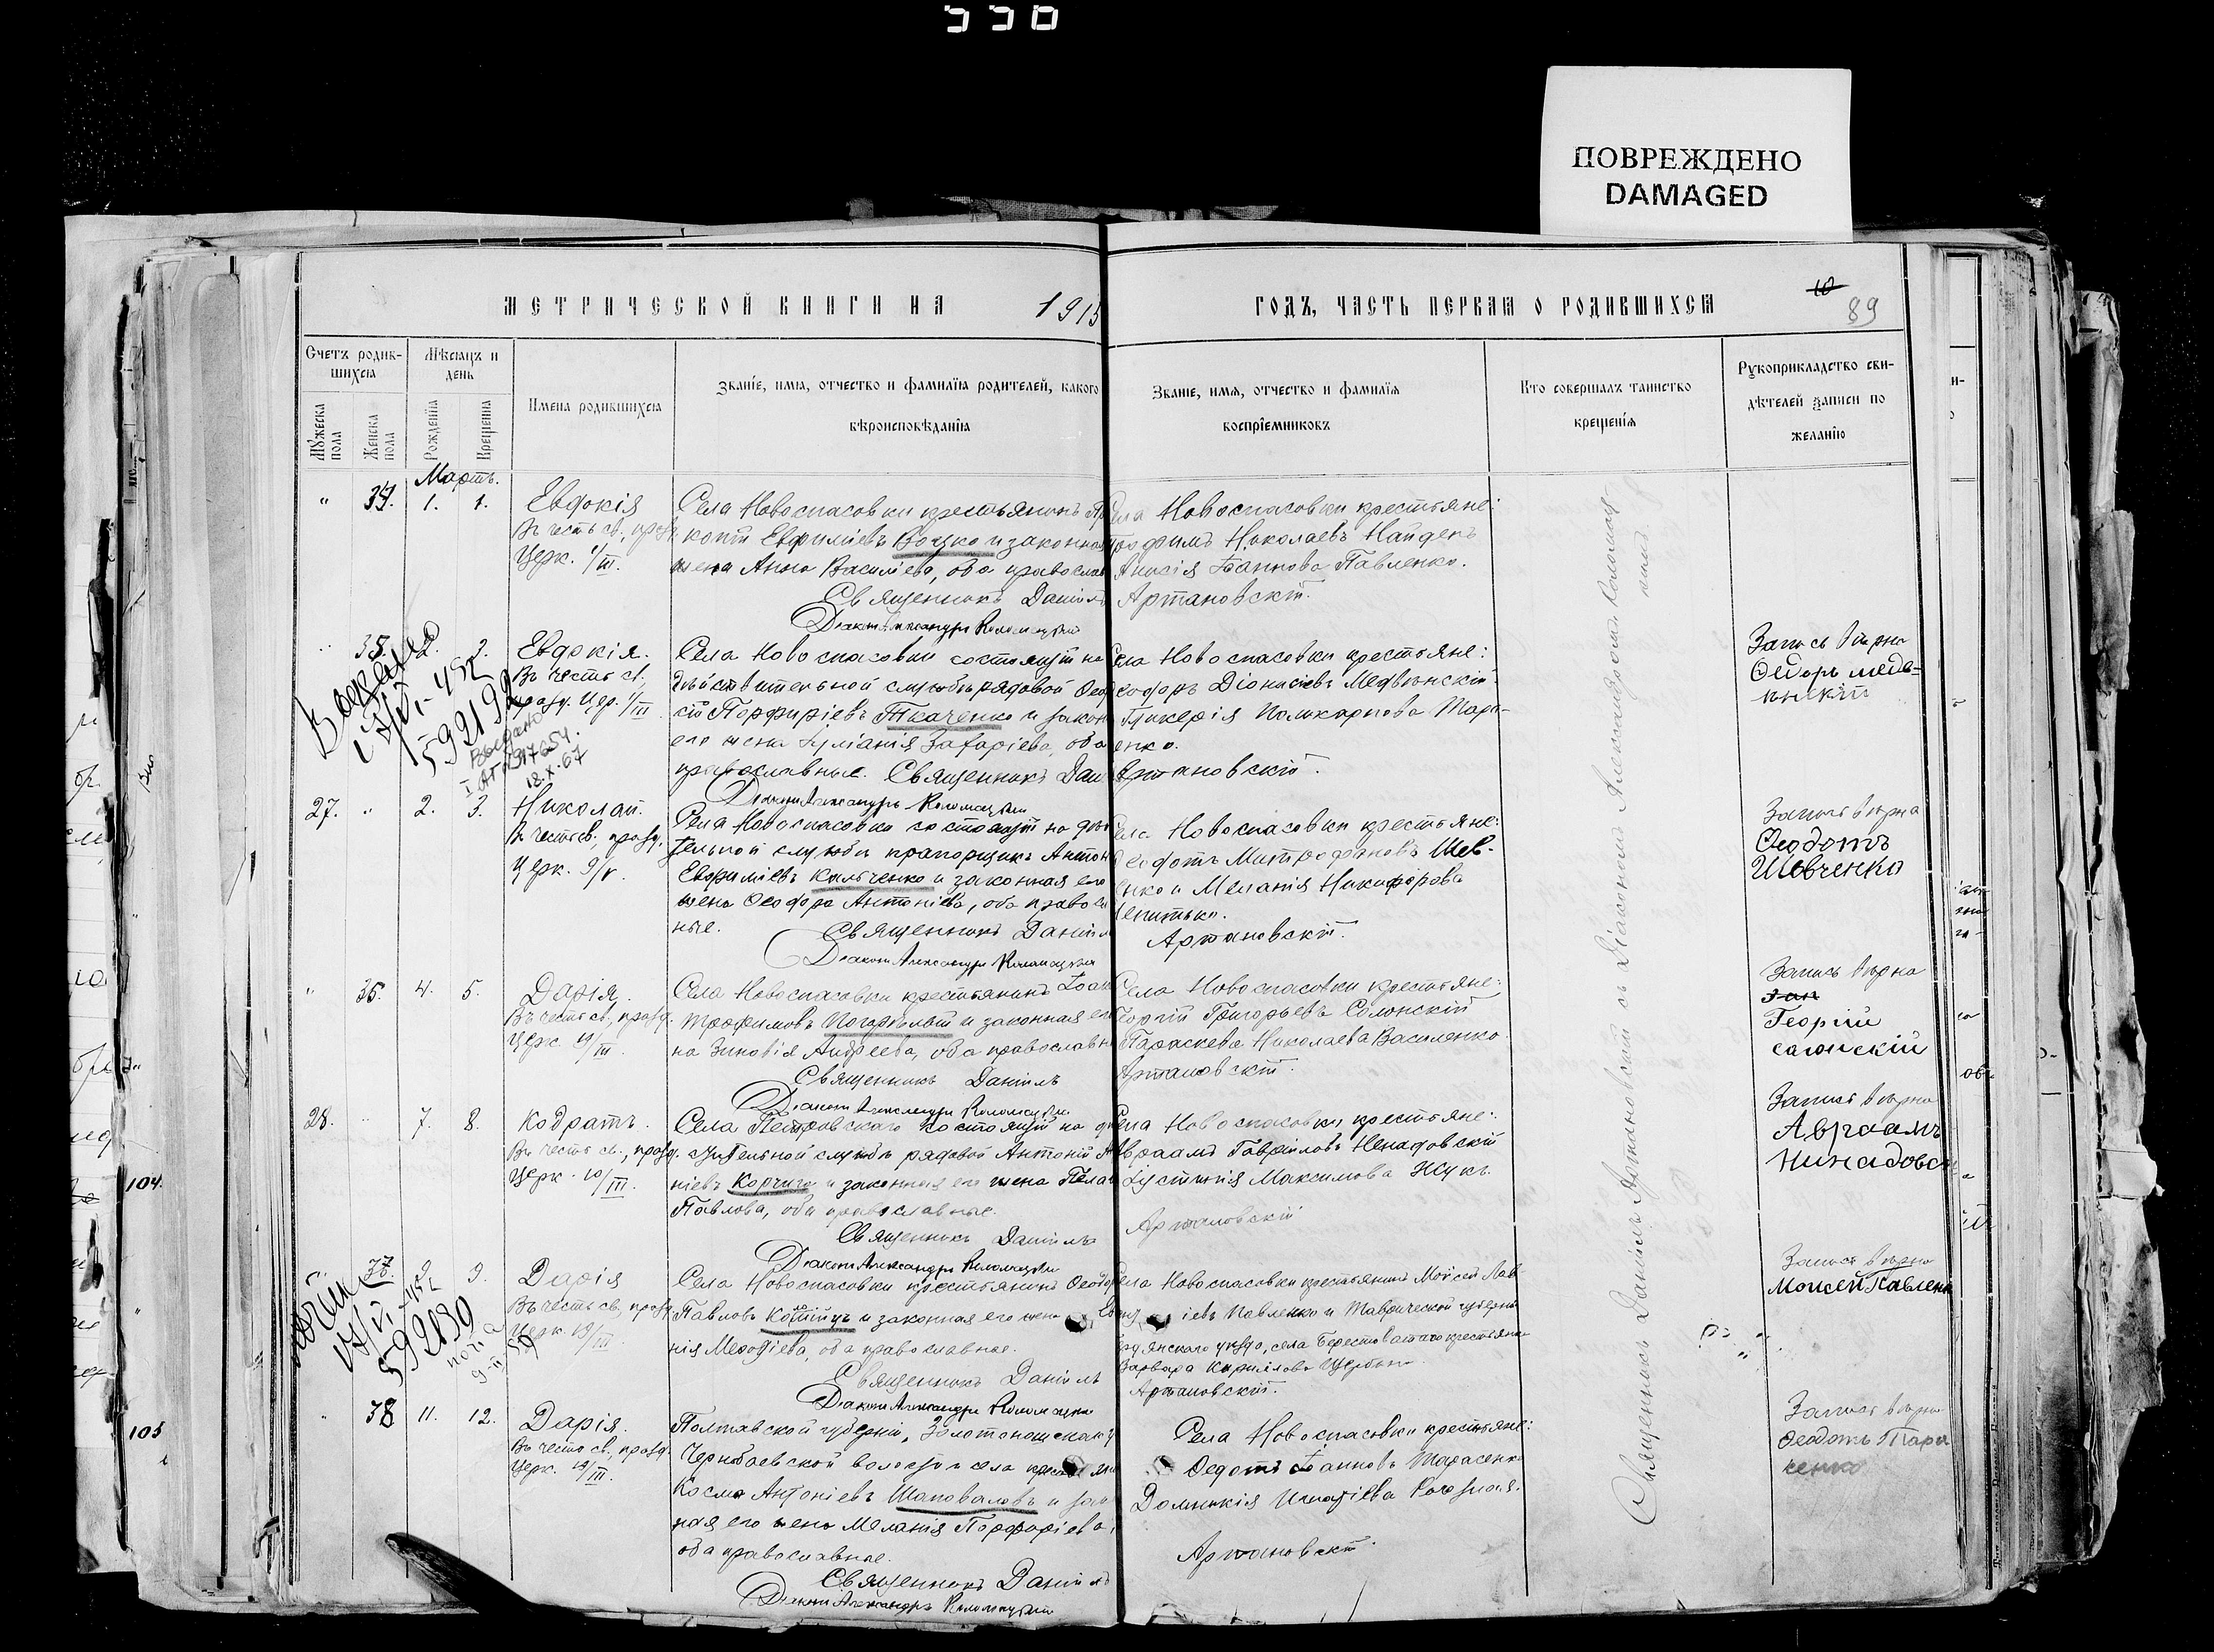 ПОВРЕЖДЕНО
DAMAGED
МЕТРИЧЕСКОЙ КНИГИ НА 1915
ГОДЪ, ЧАСТЬ ПЕРВАЯ О РОДИВШИХСЯ
89
Счетъ родив-
шихся
Мѣсяцъ и
день
Мужеска пола
Женска пола
Рожденія
Крещенія
Имена родившихся
Званіе, имя, отчество и фамилія родителей, какого
вѣроисповѣданія
Званіе, имя, отчество и фамилія
воспріемниковъ
Кто совершалъ таинство
крещенія
Рукоприкладство сви-
дѣтелей записи по
желанію
Мартъ.
1. 1. Евдокія
Въ честь св., празд.
Церк. 1/III.
Села Новоспасовки крестьянинъ
копій Евфиміевъ Воцко и законная
жена Анна Василіева, оба православ
Священникъ Даніилъ
Діаконъ Александръ Коломацкій
Села Новоспасовки крестьяне:
Трофимъ Николаевъ Найденъ
Анисія Іоаннова Павленко.
Артановскій.
2. 3. Евдокія.
Въ честь св.
празд. Цер. 1/III
592192
Выдано
18.X.67
Села Новоспасовки состоящій на
дѣйствительной службѣ рядовой Ѳеод
сій Порфиріевъ Ткаченко и закон
его жена Іуліанія Захаріева, оба
православные. Священникъ Дан
Діаконъ Александръ Коломацкій
Села Новоспасовки крестьяне:
Ѳеодоръ Діонисіевъ Медвѣнскій
Гликерія Поликарпова Тара-
енко.
Артановскій.
Запись вѣрна
27. " 2. 3. Николай.
Въ честь св., празд.
Церк. 9/V.
Села Новоспасовки состоящій на дѣй
тельной службѣ прапорщикъ Антон
Евфиміевъ Кильченко и законная его
жена Ѳеодора Антоніева, оба правосла
ные.
Священникъ Даніилъ
Діаконъ Александръ Коломацкій
Села Новоспасовки крестьяне:
Ѳеодотъ Митрофановъ Шев-
енко и Меланія Никифорова
Артановскій.
Запись вѣрна
Ѳеодотъ
Шевченко
" 4. 5. Дарія.
Въ честь св., празд.
Церк. 19/III.
Села Новоспасовки крестьянинъ Іоан
Трофимовъ Погорѣлый и законная е
на Зиновія Андреева, оба православн
Священникъ Даніилъ
Діаконъ Александръ Коломацкій
Села Новоспасовки крестьяне:
Георгій Григорьевъ Солонскій
Параскева Николаева Василенко
Артановскій.
Запись вѣрна
Георгій
28. 7. 8. Кодратъ.
Въ честь св., празд.
Церк. 10/III.
Села Петровскаго состоящій на д
ствительной службѣ рядовой Антоній А
ніевъ Корчига и законная его жена Пела
Павлова, оба православные.
Священникъ Даніилъ
Діаконъ Александръ Коломацкій
Села Новоспасовки крестьяне:
Авраамъ Гавріиловъ Ненадовскій
Іустинія Максимова Жукъ.
Артановскій
Запись вѣрна
Авраамъ
37. 9. Дарія
Въ честь св., празд.
Церк. 19/III.
Села Новоспасовки крестьянинъ Ѳеодор
Павловъ и законная его жена
нія Меѳодіева, оба православные.
Священникъ Даніилъ
Діаконъ Александръ Коломацкій
Села Новоспасовки крестьянинъ Моисей Лав
іевъ Павленко и Таврической губерніи
Бердянскаго уѣзда, села Берестоватаго крестьянка
Варвара Кириллова Щербина
Артановскій.
Запись вѣрна
Моисей Павленк
38 11. 12. Дарія.
Въ честь св., празд.
Церк. 19/III.
Полтавской губерніи, Золотоношскаг
Чернобаевской волости и села
Косма Антоніевъ Шаповаловъ и зак
ная его жена Меланія Порфиріева,
оба православные.
Священникъ Даніилъ
Діаконъ Александръ Коломацкій
Села Новоспасовки крестьяне:
Ѳедотъ Іоанновъ Тарасенк
Домникія Игнатіева
Артановскій.
Запись вѣрна
Ѳеодотъ Тара
сенко
Священникъ Даніилъ Артановскій съ Діакономъ Александромъ Коломац
кимъ
104.
105